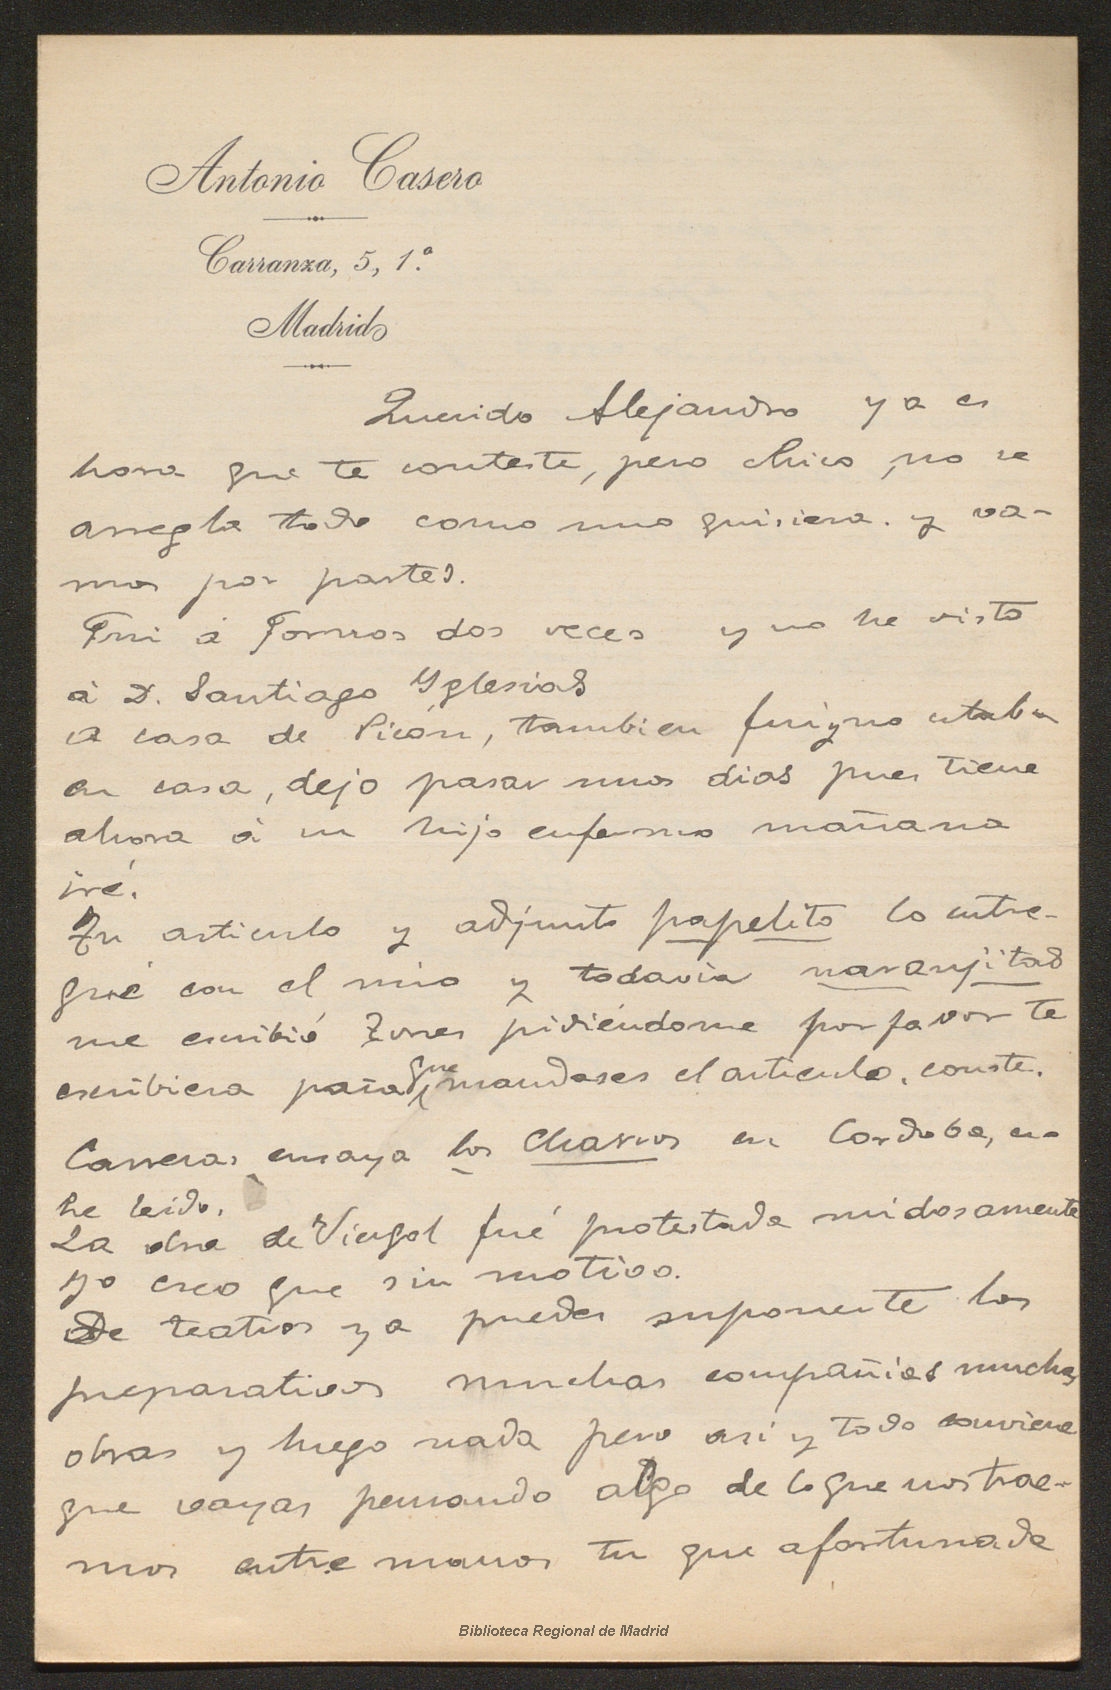 Antonio Casero
Carranza, 5, 1.º
Madrid
Querido Alejandro ya es
hora que te conteste, pero chico, no se
arregla todo como uno quisiera. y va-
mos por partes.
Fui á Fornos dos veces y no he visto
á D. Santiago Yglesias
A casa de Picón, tambien fui y no estaba
en casa, dejo pasar unos dias pues tiene
ahora á un hijo enfermo mañana
iré.
Tu articulo y adjunto papelito lo entre-
gué con el mio y todavia naranjitas
me escribió pidiéndome por favor te
escribiera para que mandases el articulo. conste.
Carreras ensaya los Charros en Cordoba, eso
he leido.
La obra de Viergol fué protestada ruidosamente
yo creo que sin motivo.
De teatros ya puedes suponerte los
preparativos muchas compañias muchas
obras y luego nada pero asi y todo conviene
que vayas pensando algo de lo que nos trae-
mos entre manos tu que afortunada
Biblioteca Regional de Madrid